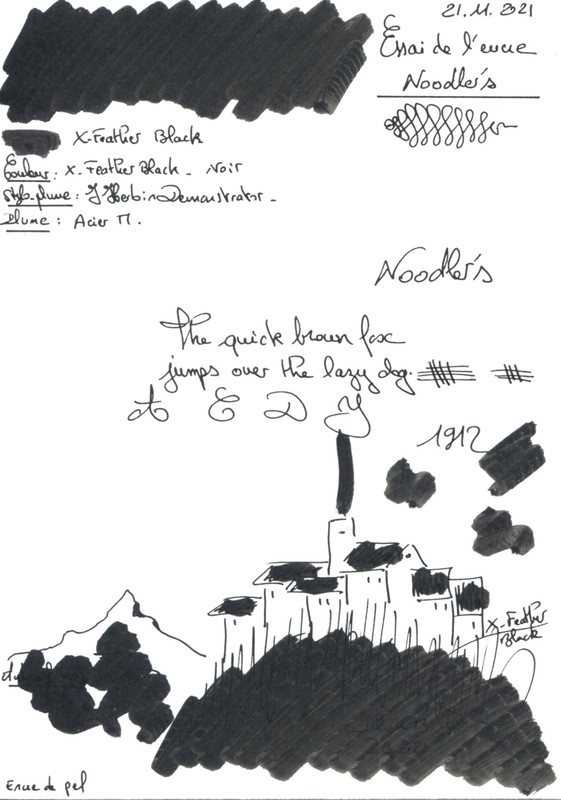 21.11.2021
Essai de l'encre
Noodler's
X-Feather Black
Couleur : X-Feather Black - Noir
Stylo-plume : J. Herbin Demonstrator -
Plume : Acier M.
Noodler's
The quick brown fox
jumps over the lazy dog.
A E D Y
1912
X-Feather
Black